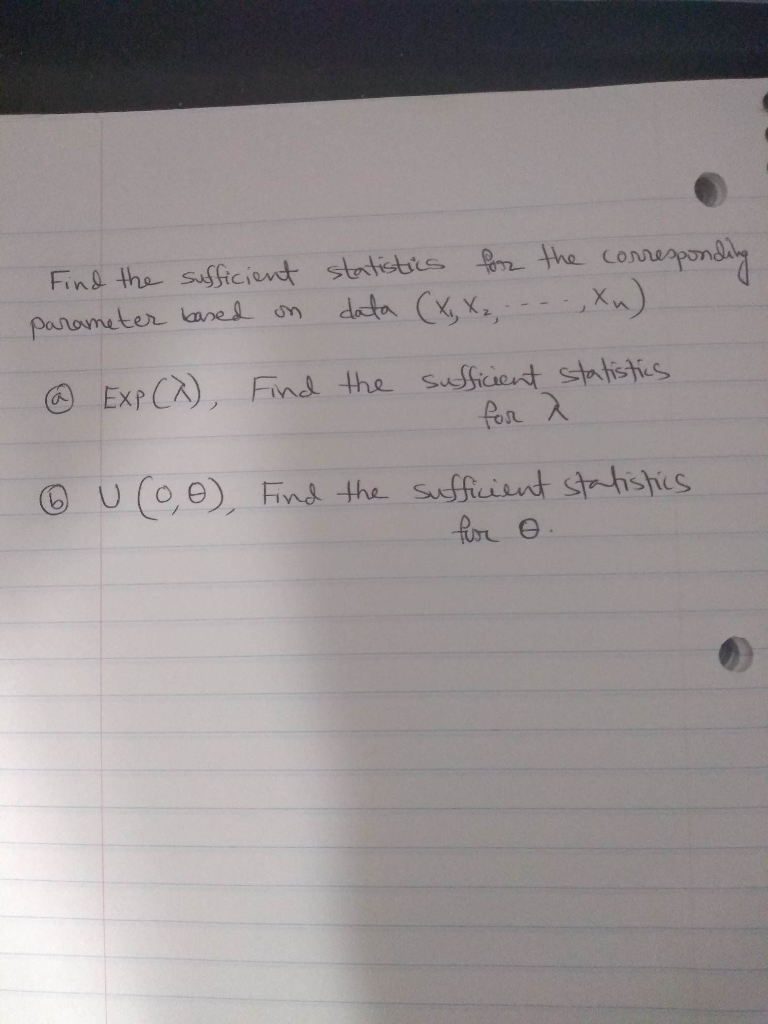 Find the sufficient statistics for the corresponding
parameter based on data (X₁, X₂, ----, Xn)
ⓐ Exp(λ), Find the sufficient statistics
for λ
ⓑ U(0,θ), Find the sufficient statistics
for θ.